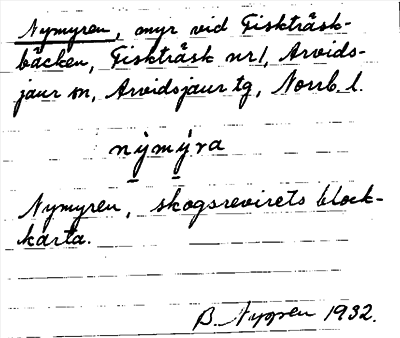 Nymyren, myr vid Fiskträsk-
bäcken, Fiskträsk nr 1, Arvids-
jaur sn, Arvidsjaur tg, Norrb. l.
nỳmýra
Nymyren, skogsrevirets block-
karta.
B. Nyppen 1932.